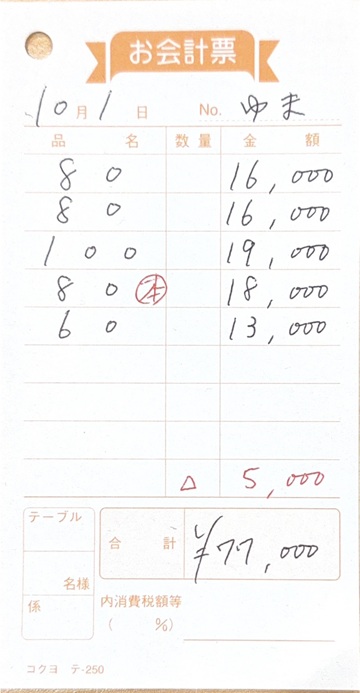 お会計票
10月1日 No. ゆま
品名 数量 金額
80 16,000
80 16,000
100 19,000
80 本 18,000
60 13,000
△ 5,000
テーブル
名様
係
合計 ¥77,000
内消費税額等
( %)
コクヨ テ-250